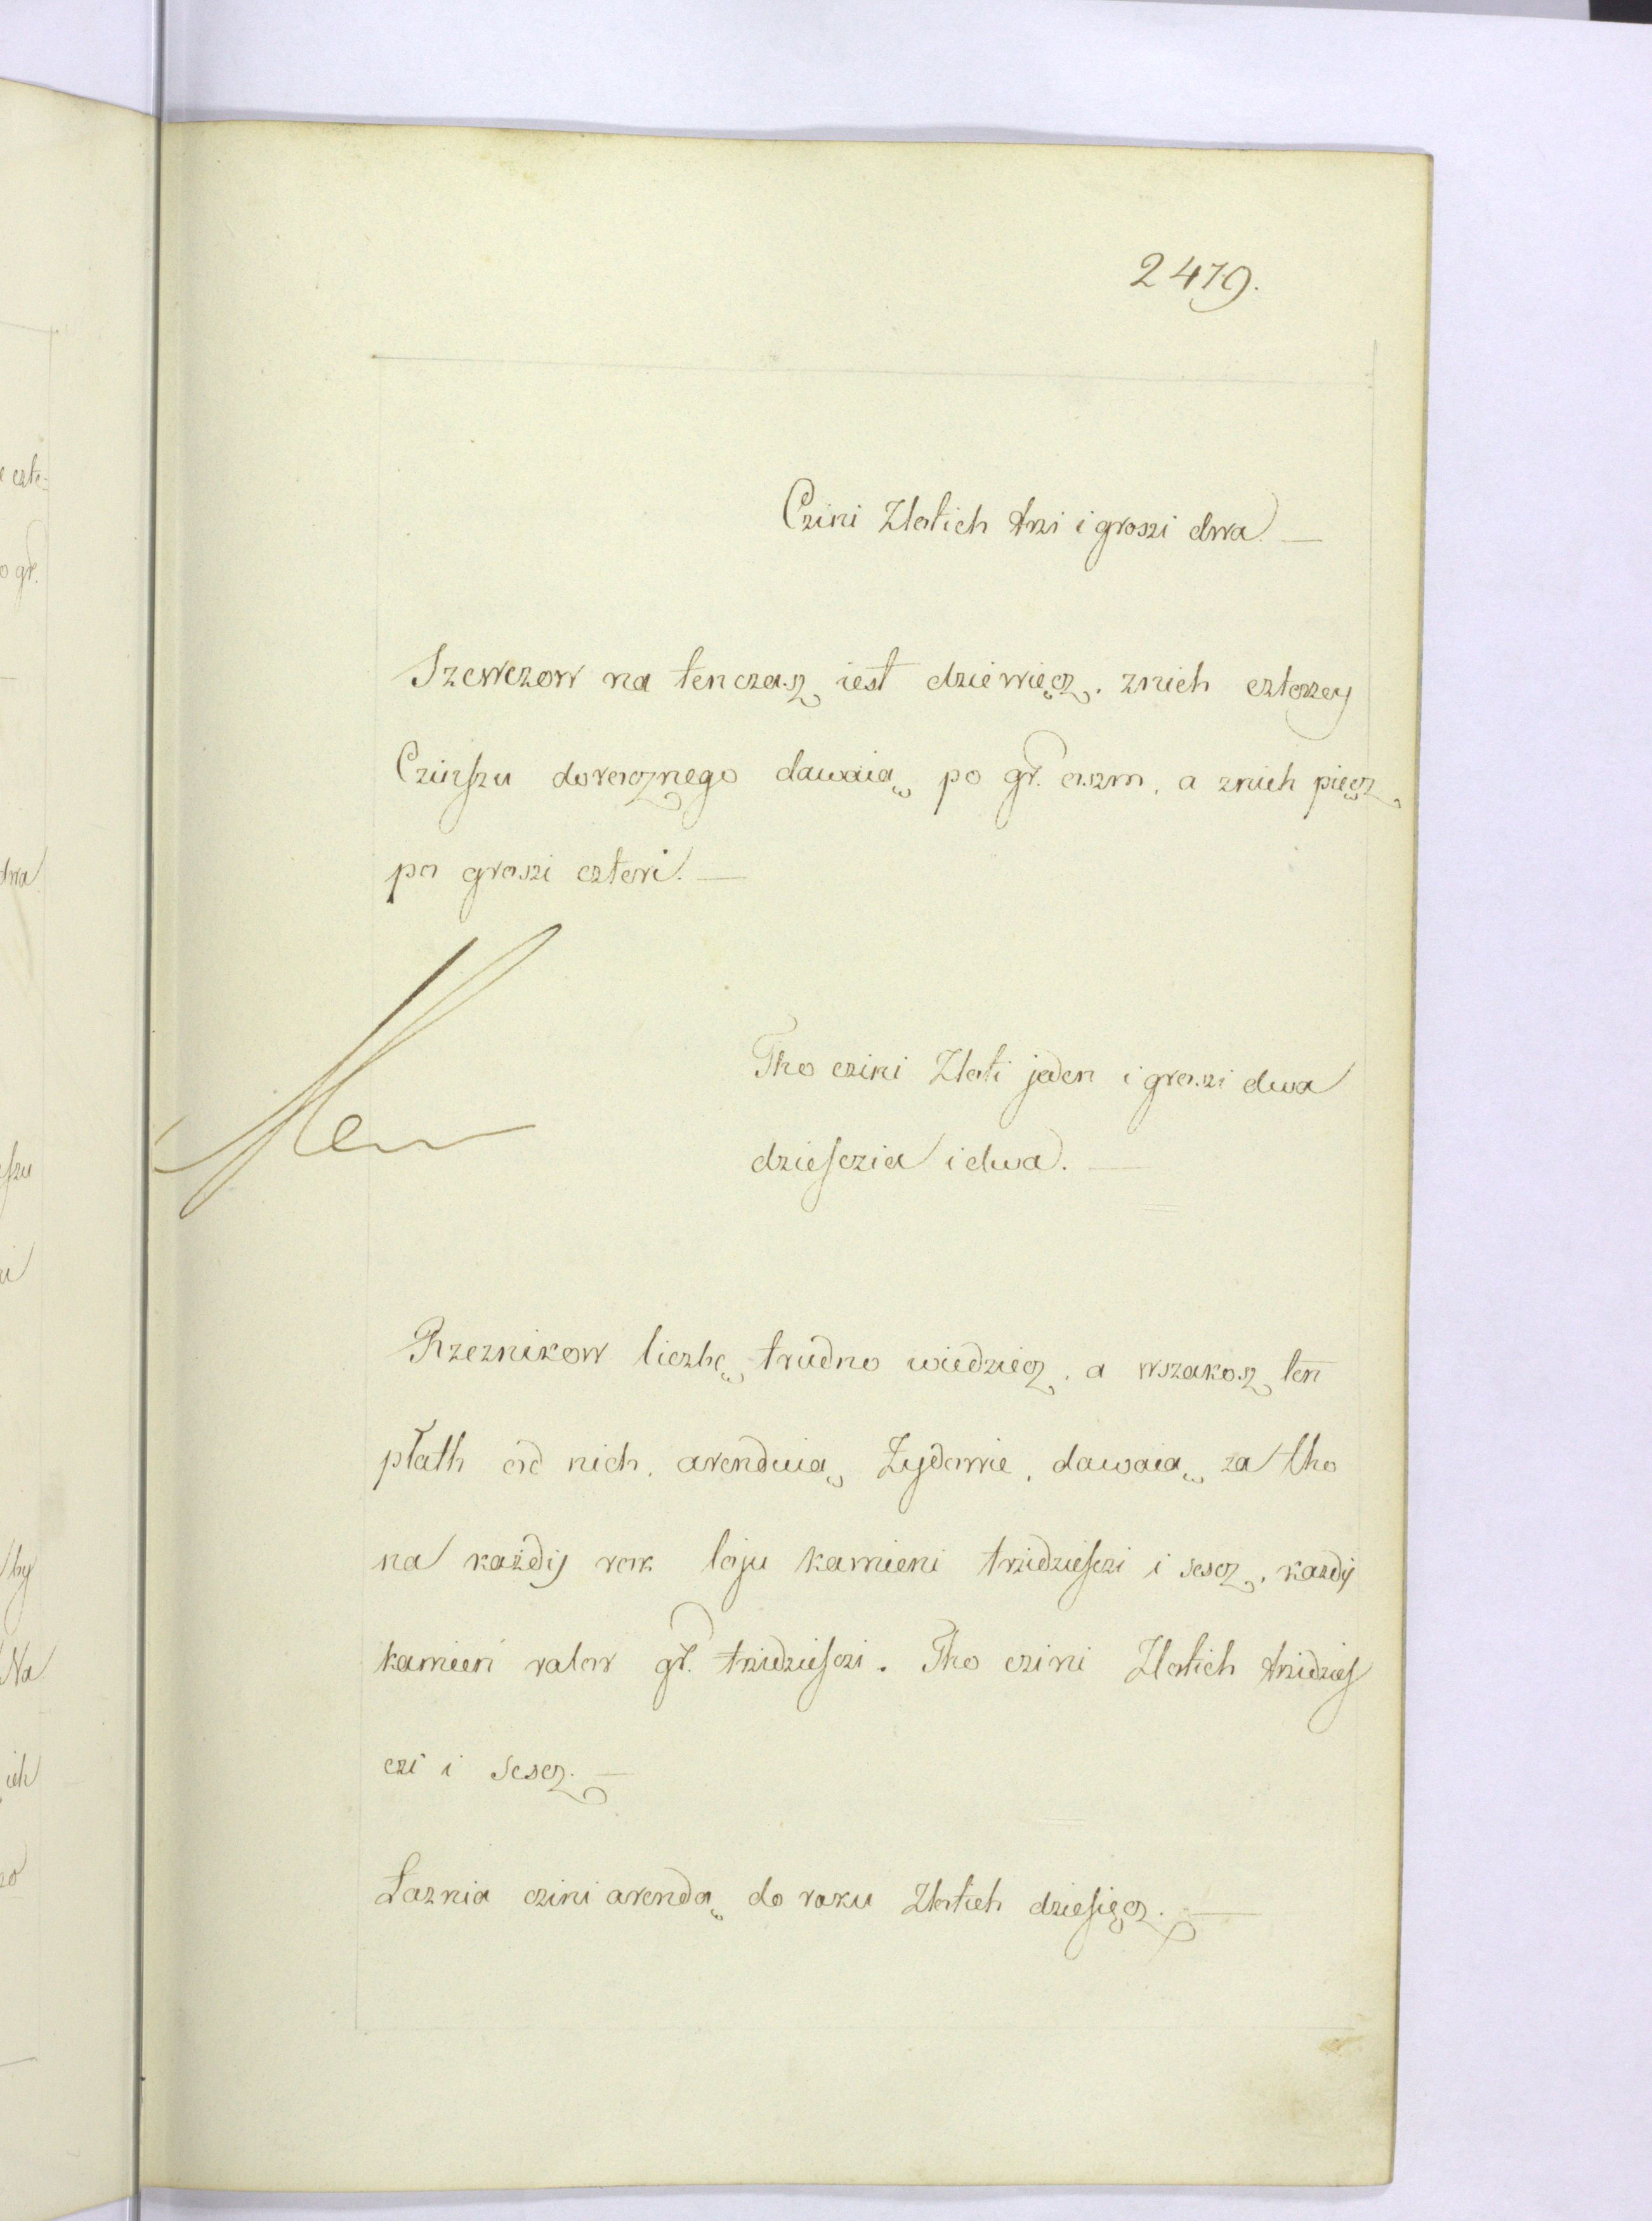 2479.
Czini Zlotich trzi i groszi dwa. —
Szewczow na ten czasz iest dziewięcz. znich czterzey
Czinszu dorocznego dawaią po gr. oszm, a znich pięcz
po groszi czteri. —
Tho czini Zloti jeden i groszi dwa
dziesczia i dwa. —
Rzeznikow liczbę trudno wiedziecz, a wszakosz ten
płath od nich, arenduią Żydowie, dawaią za tho
na każdy rok loju kamieni trzidziesczi i sescz, kazdy
kamień valor gr. trzidziesczi. Tho czini Zlotich trzidzies
czi i sescz. —
Łaznia czini arendą do roku Zlotich dziesięcz. —